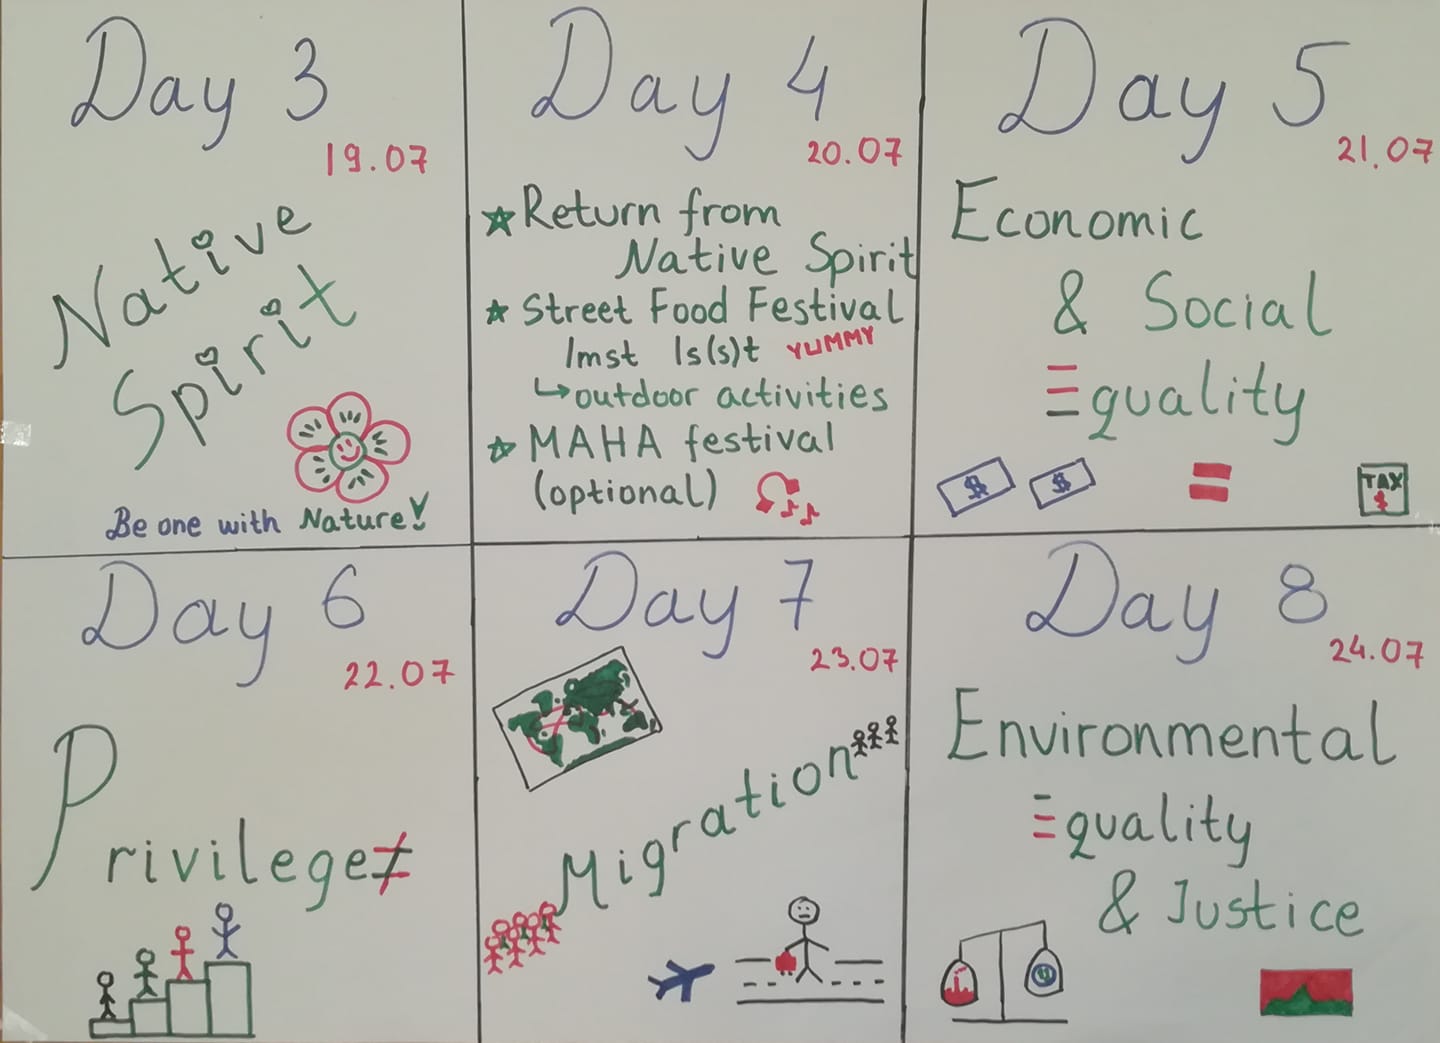 Day 3
19.07
Native
Spirit
Be one with Nature!
Day 4
20.07
Return from
Native Spirit
Street Food Festival
Imst Is(s)t YUMMY
↳outdoor activities
MAHA festival
(optional)
Day 5
21.07
Economic
& Social
Equality
$ $
=
TAX
$
Day 6
22.07
Privilege≠
Day 7
23.07
Migration
Day 8
24.07
Environmental
Equality
& Justice